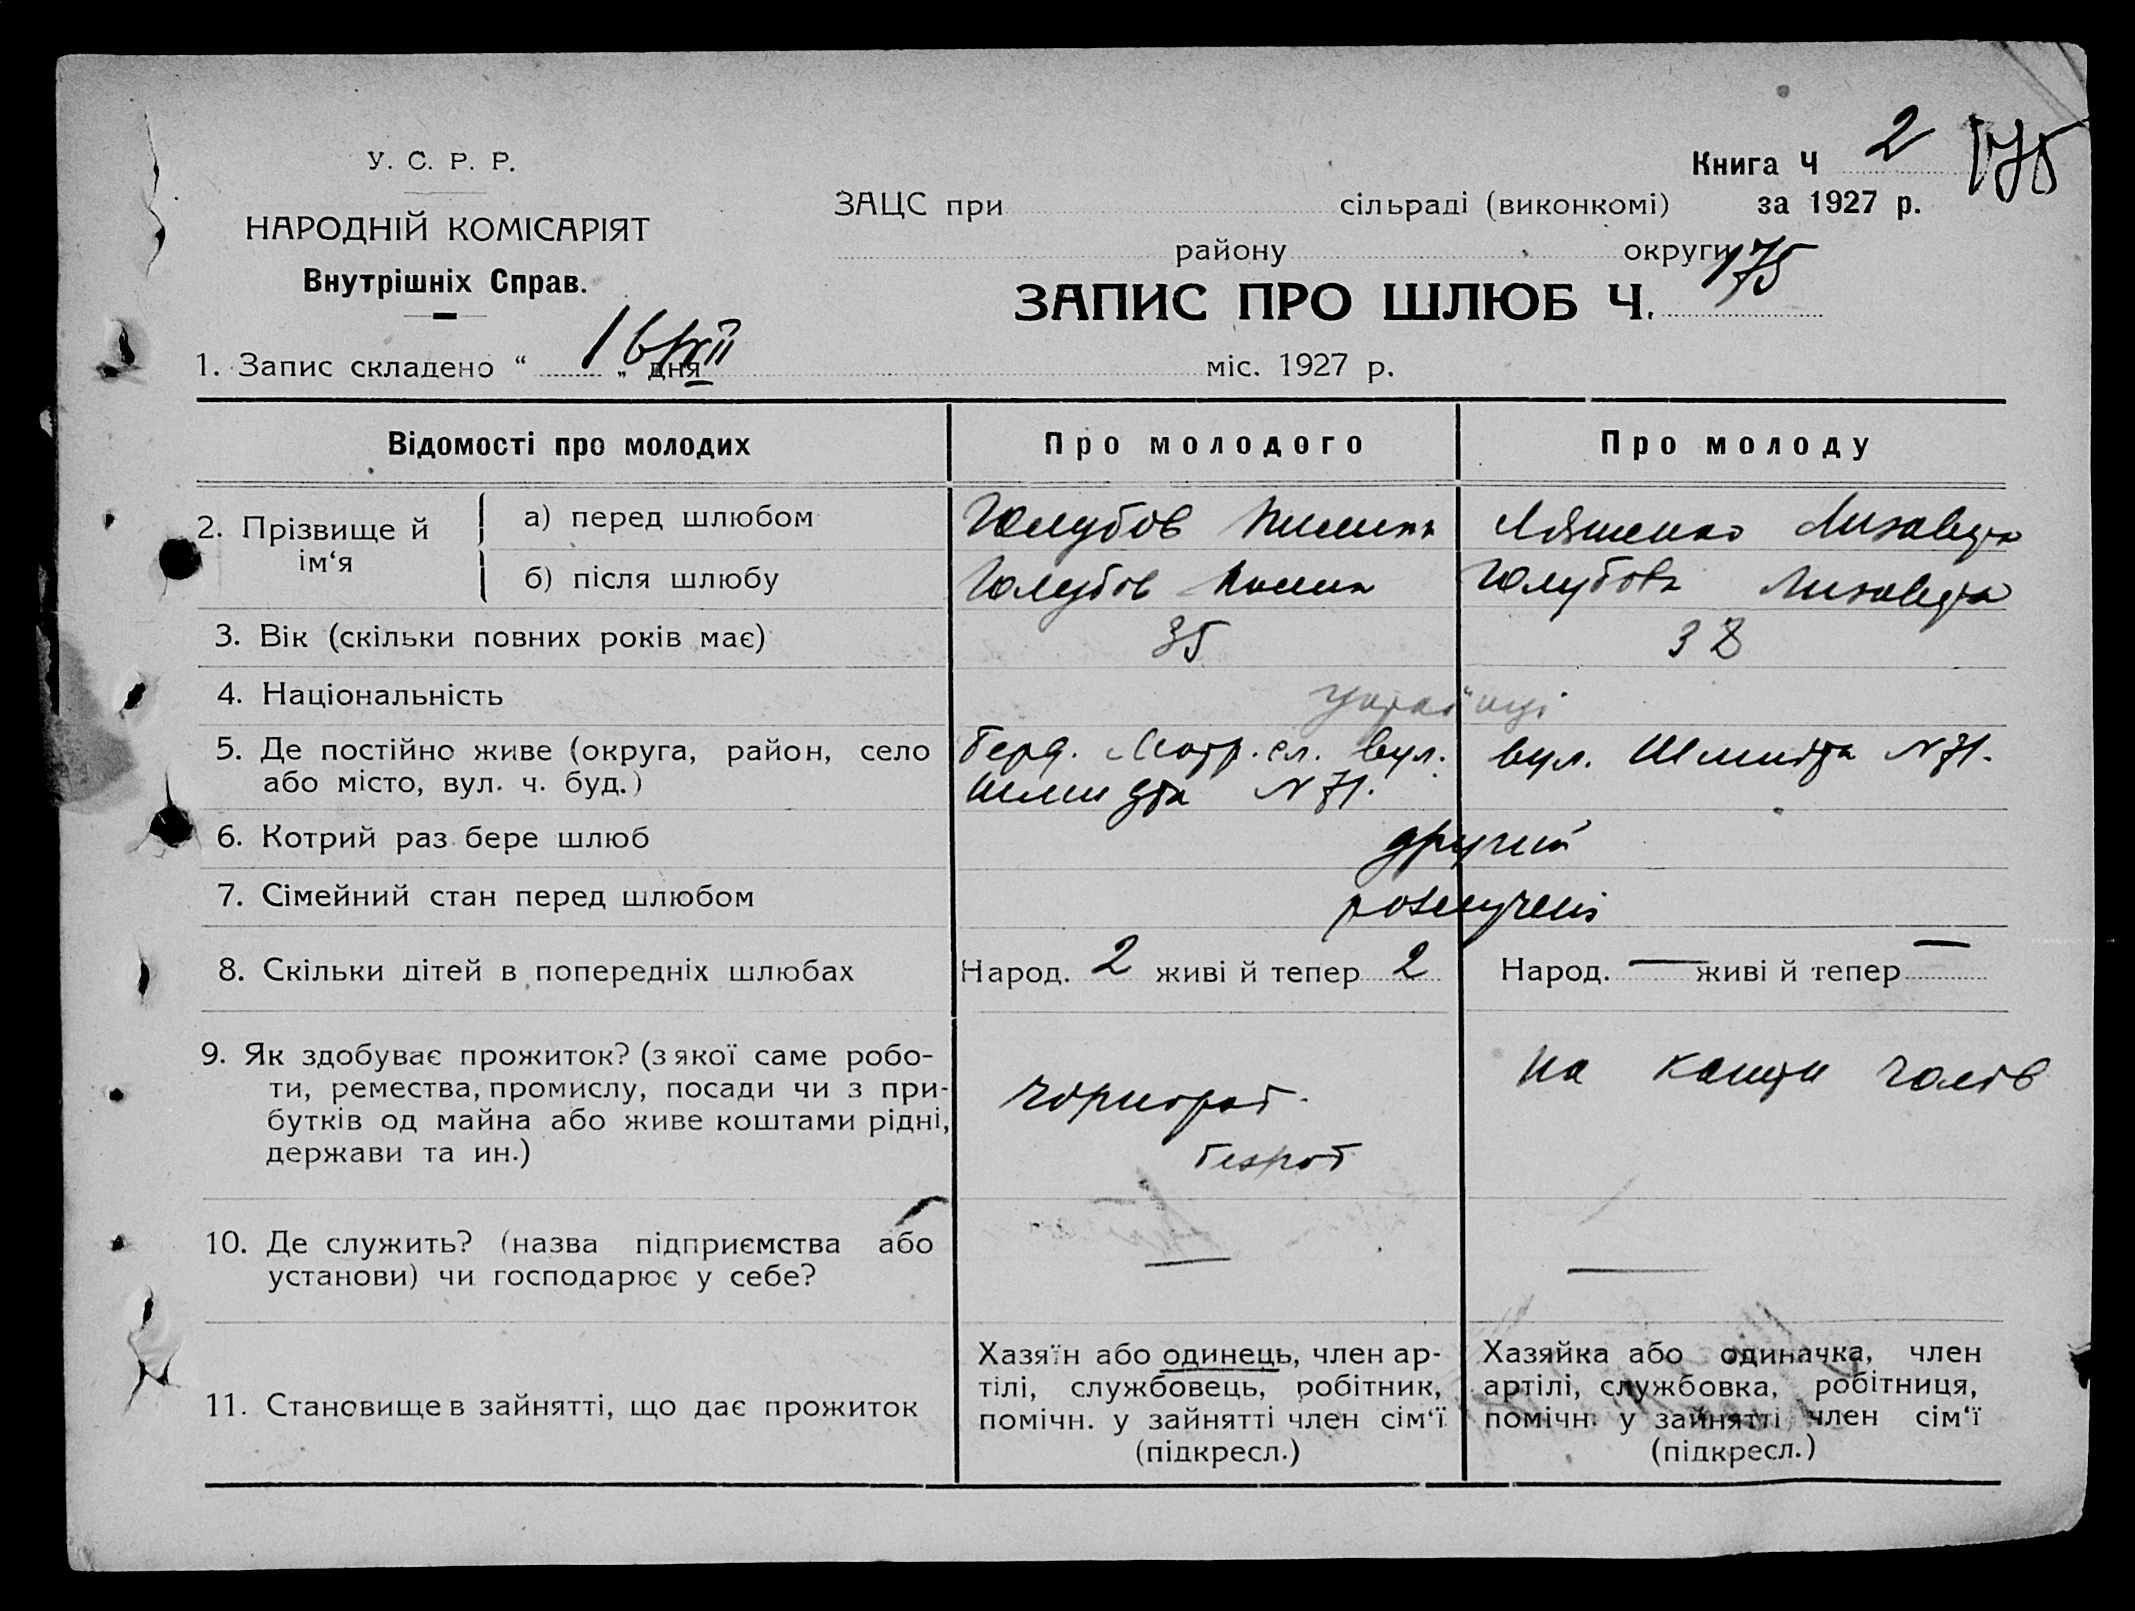 У. С. Р. Р.
НАРОДНІЙ КОМІСАРІЯТ
Внутрішніх Справ.
Книга Ч 2 175
ЗАЦС при сільраді (виконкомі) за 1927 р.
району округи
ЗАПИС ПРО ШЛЮБ Ч. 175
1. Запис складено “ 16/XII „ дня міс. 1927 р.
Відомості про молодих
Про молодого
Про молоду
2. Прізвище й ім‘я
а) перед шлюбом
Голубов
Ляшенко Лизавета
б) після шлюбу
Голубов
Голубова Лизавета
3. Вік (скільки повних років має)
35
32
4. Національність
українці
5. Де постійно живе (округа, район, село
або місто, вул. ч. буд.)
Берд. Матр. сл. вул.
Шмидта N 71.
вул. Шмидта N 71.
6. Котрий раз бере шлюб
другий
7. Сімейний стан перед шлюбом
розлучені
8. Скільки дітей в попередніх шлюбах
Народ. 2 живі й тепер 2
Народ. — живі й тепер —
9. Як здобуває прожиток? (з якої саме робо-
ти, ремества, промислу, посади чи з при-
бутків од майна або живе коштами рідні,
держави та ин.)
чорнороб.
безроб
на кошти чолов
10. Де служить? (назва підприємства або
установи) чи господарює у себе?
—
—
11. Становище в зайнятті, що дає прожиток
Хазяїн або одинець, член ар-
тілі, службовець, робітник,
помічн. у зайнятті член сім‘ї
(підкресл.)
Хазяйка або одиначка, член
артілі, службовка, робітниця,
помічн. у зайнятті член сім‘ї
(підкресл.)